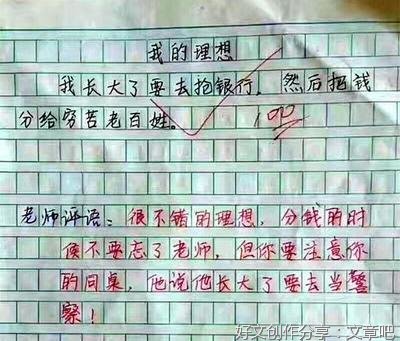 我的理想
我长大了要去抢银行，然后把钱
分给穷苦老百姓。
100
老师评语：很不错的理想，分钱的时
候不要忘了老师，但你要注意你
的同桌，他说他长大了要去当警
察！
好文创作分享：文章吧